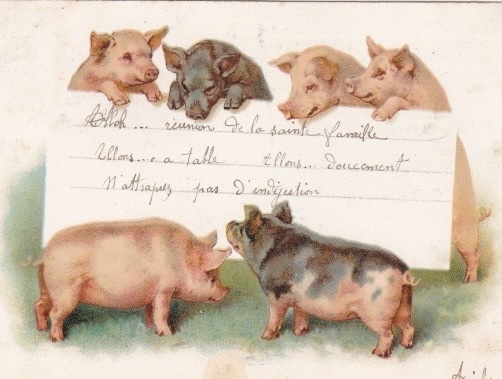 Alloh... réunion de la sainte famille
Allons... a table Allons... doucement
N'attrapez pas d'indigestion